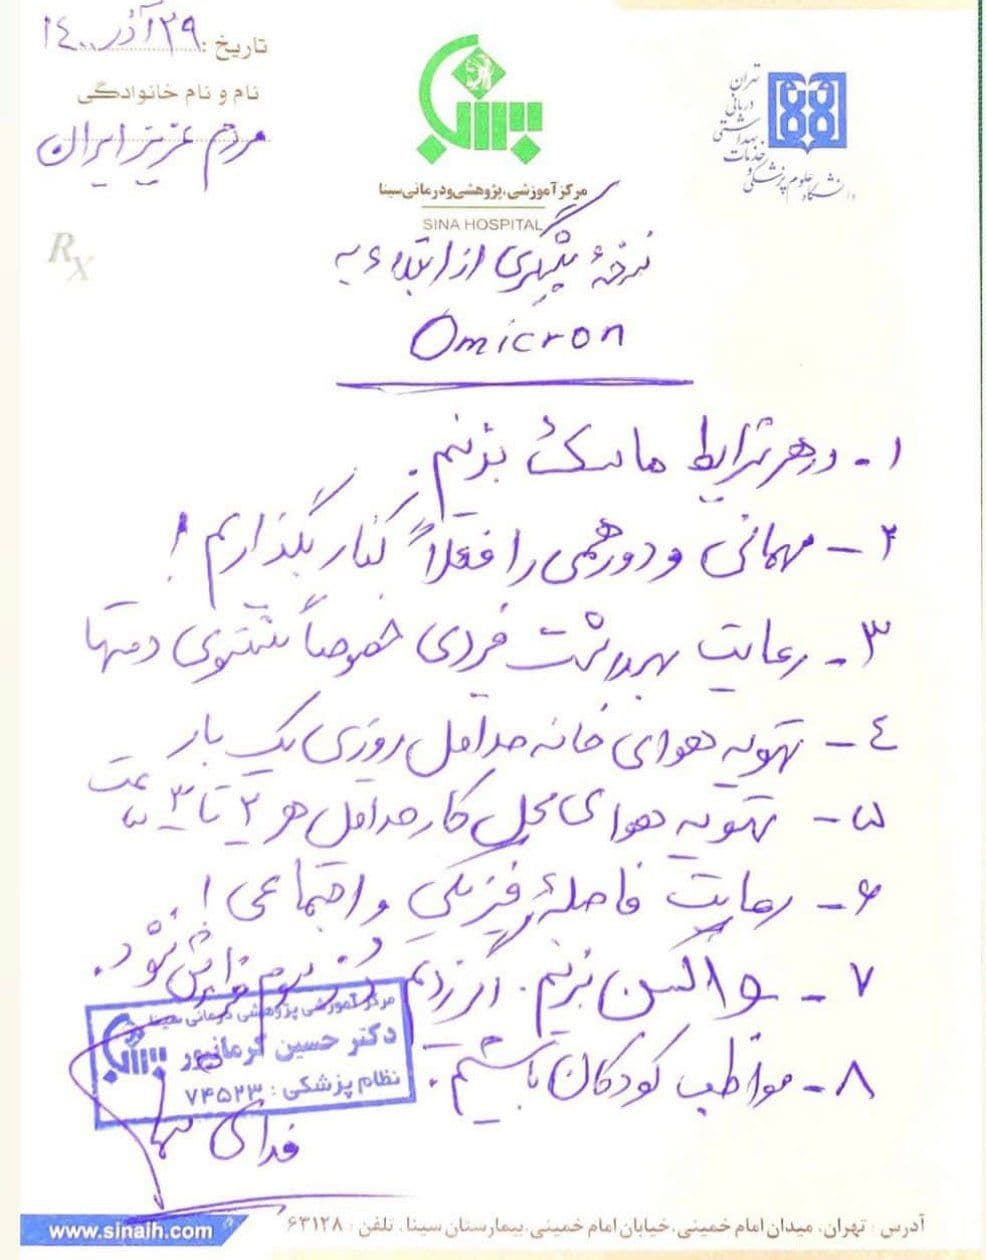 تاریخ: ۲۹ آذر ۱۴۰۰
نام و نام خانوادگی
مردم عزیز ایران
دانشگاه علوم پزشکی و خدمات بهداشتی درمانی تهران
سینا
مرکز آموزشی، پژوهشی و درمانی سینا
SINA HOSPITAL
Rx
نسخهٔ پیشگیری از ابتلاء به
Omicron
۱- در هر شرایط ماسک بزنیم.
۲- مهمانی و دورهمی را فعلاً کنار بگذاریم!
۳- رعایت بهداشت فردی خصوصاً شستشوی دستها
٤- تهویه هوای خانه حداقل روزی یک بار
۵- تهویه هوای محل کار حداقل هر ۲ تا ۳ ساعت
۶- رعایت فاصلهٔ فیزیکی و اجتماعی!
۷- واکسن بزنیم. اگر زدیم دز سوم فراموش نشود.
۸- مواظب کودکان باشیم.
مرکز آموزشی پژوهشی درمانی سینا
دکتر حسین کرمانپور
نظام پزشکی: ۷۴۵۲۳
سینا
فدای شما
آدرس: تهران، میدان امام خمینی، خیابان امام خمینی، بیمارستان سینا، تلفن: ۶۳۱۲۸
www.sinaih.com